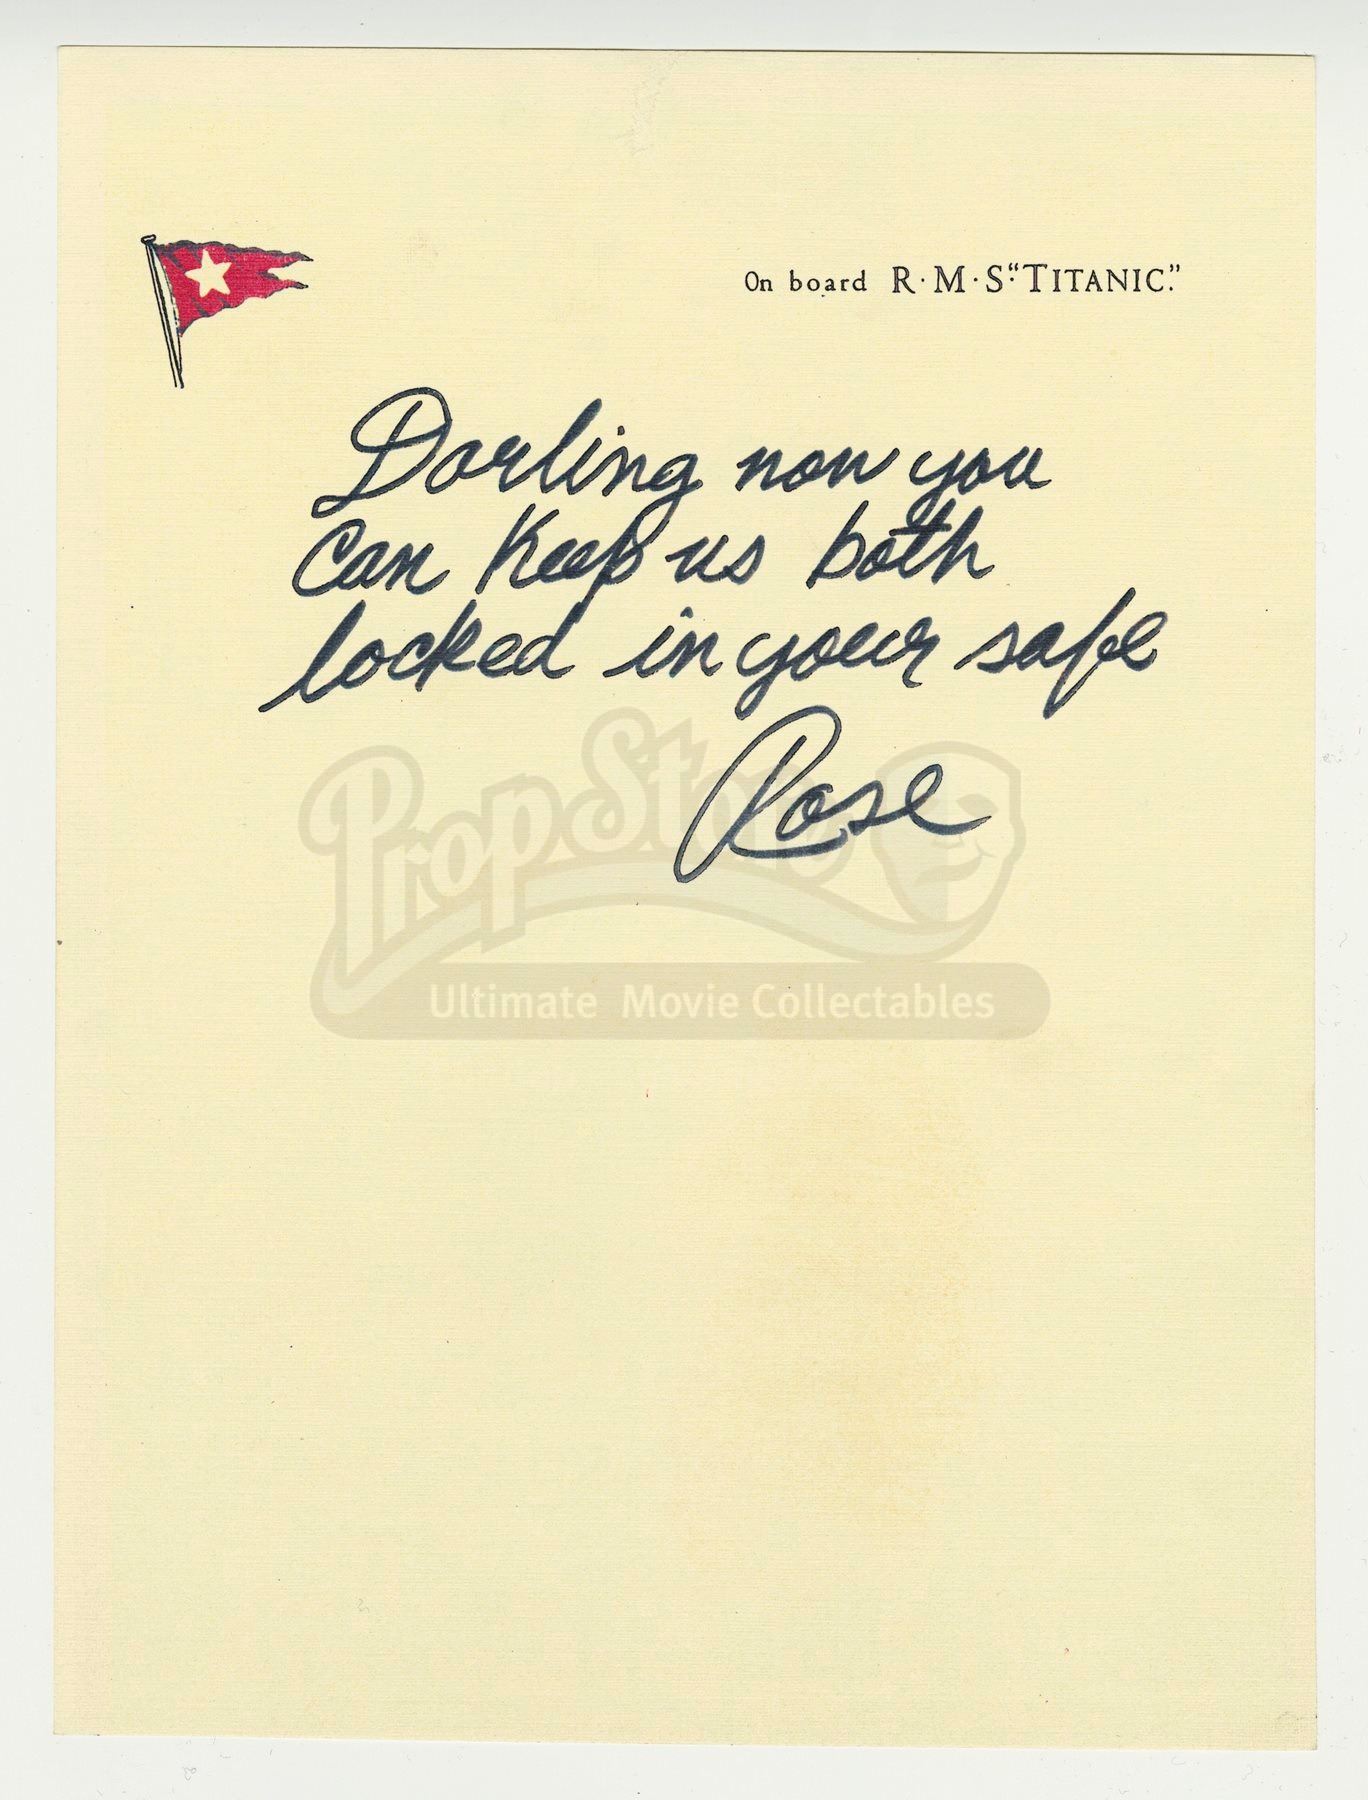 On board R·M·S·"TITANIC."
Darling now you
can keep us both
locked in your safe
Rose
PropStore
Ultimate Movie Collectables